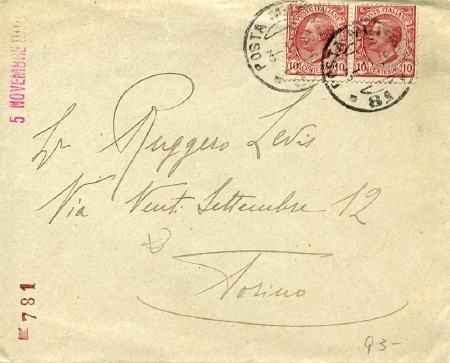 POSTE ITALIANE POSTE ITALIANE
10 CENTESIMI 10 10 CENTESIMI 10
POSTA M
POSTA M
18
5 NOVEMBRE
Sr Ruggero Levis
Via Venti Settembre 12
Torino
781
93-